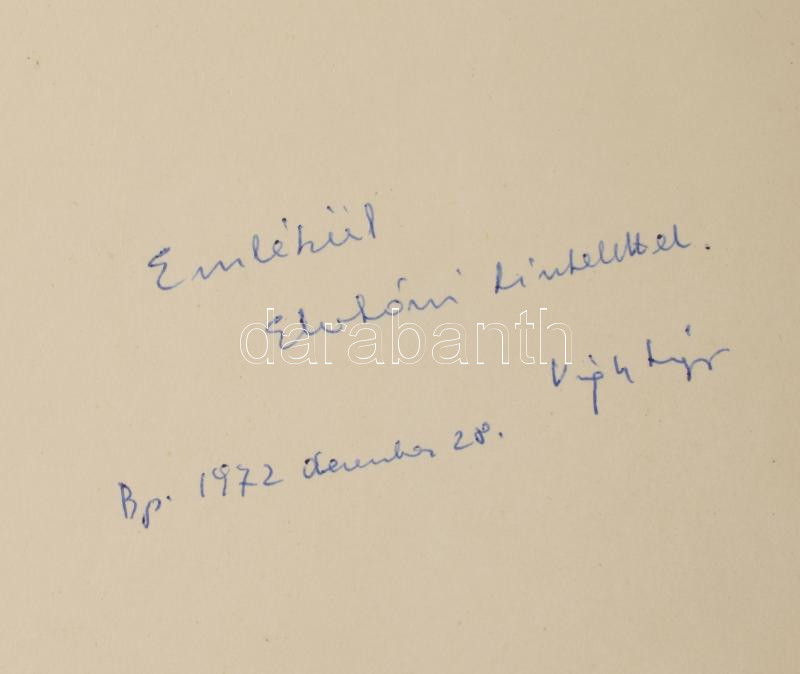 Emlékül
Elvtársi tisztelettel.
Vigh
Bp. 1972 december 28.
darabanth